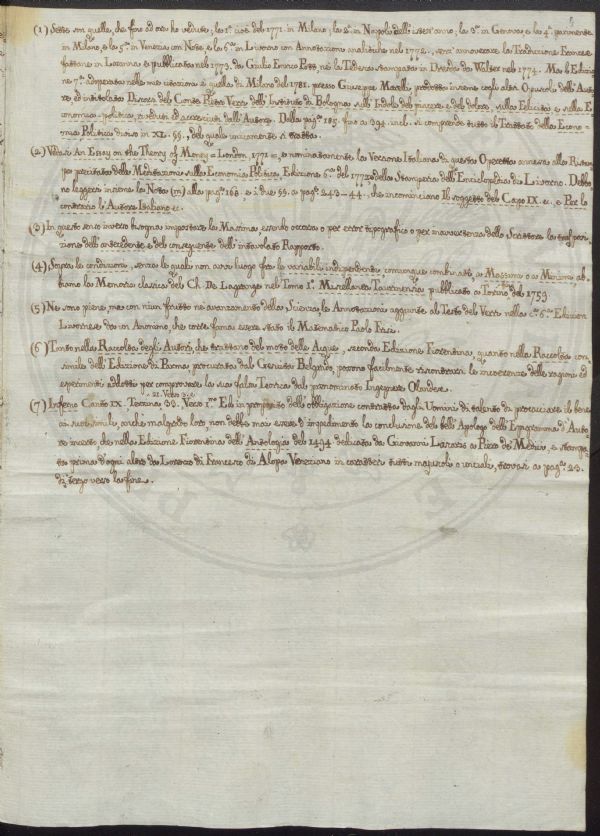 (1) Sette son quelle, che fino ad ora ho vedute, la 1ª. cioè del 1771 in Milano, la 2ª. in Napoli dell'istess'anno, la 3ª. in Genova, e la 4ª. parimente
in Milano, e la 5ª. in Venezia con Note, e la 6ª. in Livorno con Annotazioni analitiche nel 1772, senz'annoverare la Traduzione Francese
fattane in Lozanna e pubblicata nel 1773. da Giulio Enrico Pott, nè la Tedesca stampata in Dresda da Walter nel 1774. Ma la Edizio-
ne 7ª. adoperata nelle mie citazioni è quella di Milano del 1781. presso Giuseppe Marelli, prodotta insieme cogli altri Opuscoli dell'Auto-
re ed intitolata Discorsi del Conte Pietro Verri dell'Instituto di Bologna sull'Indole del piacere e del dolore, sulla Felicità e sulla E-
conomia politica, riveduti ed accresciuti dall'Autore. Dalla pag.ª 185. fino a 394. incl. si comprende tutto il Trattato della Econo-
mia Politica diviso in XL. §§., del quale unicamente si tratta.
(2) Vedasi An Essay on the Theory of Money = London 1771 =, e nominatamente la Versione Italiana di questa Operetta annessa alla Ristam-
pa precitata delle Meditazioni sulla Economia Politica, Edizione 6ª. del 1772 dalla Stamperia dell'Enciclopedia di Livorno. Debbo-
no leggersi insieme la Nota (m) alla pag.ª 168, e i due §§. a pag.ª 243-44, che incominciano Il soggetto del Capo IX. &c. e Per lo
contrario le Autore Italiano &c.
(3) In questo senso inverso bisogna impostare la Massima, essendo occorsa o per error tipografico o per inavvertenza dello Scrittore la trasponi-
zione dell'antecedente e del conseguente dell'intavolato Rapporto.
(4) Sopra le condizioni, senza le quali non avvi luogo fra le variabili independenti, comunque combinate, a Massimo o a Minimo, ab-
biamo la Memoria classica del Ch. De Lagrange nel Tomo Iº. Miscellanea Taurinensia pubblicato a Torino del 1759
(5) Ne sono piene, ma con niun frutto ne avanzamento della Scienza, le Annotazioni aggiunte al Testo del Verri nella c.ª 6ª. Edizion
Livornese da un Anonimo, che corre fama essere stato il Matematico Paolo Frisi.
(6) Tanto nella Raccolta degli Autori, che trattano del moto delle Acque, seconda Edizione Fiorentina, quanto nella Raccolta con-
simile dell'Edizione di Parma procurata dal Gesuita Belgrado, possono facilmente riscontrarsi le incoerenze delle ragioni ed
esperimenti addotti per comprovare la sua falsa Teorica dal prenominato Ingegnere Olandese.
(7) Inferno Canto IX. Terzina 32. Verso 1.mo E in proposito dell'obbligazione contratta dagli Uomini di talento di procacciare il bene
ai suoi simili anche malgrado loro, non debbe mai essere d'impedimento la conclusione del bell'Apologo dell'Epigramma d'Auto-
re incerto che nella Edizione Fiorentina dell'Antologia del 1494 dedicata da Giovanni Lascaris a Piero de' Medici, e stampa-
ta prima d'ogni altra da Lorenzo di Francesco di Alopa Veneziano in caratteri tutti majuscoli o unciali, trovasi a pag.ª 23.
di tergo verso la fine.